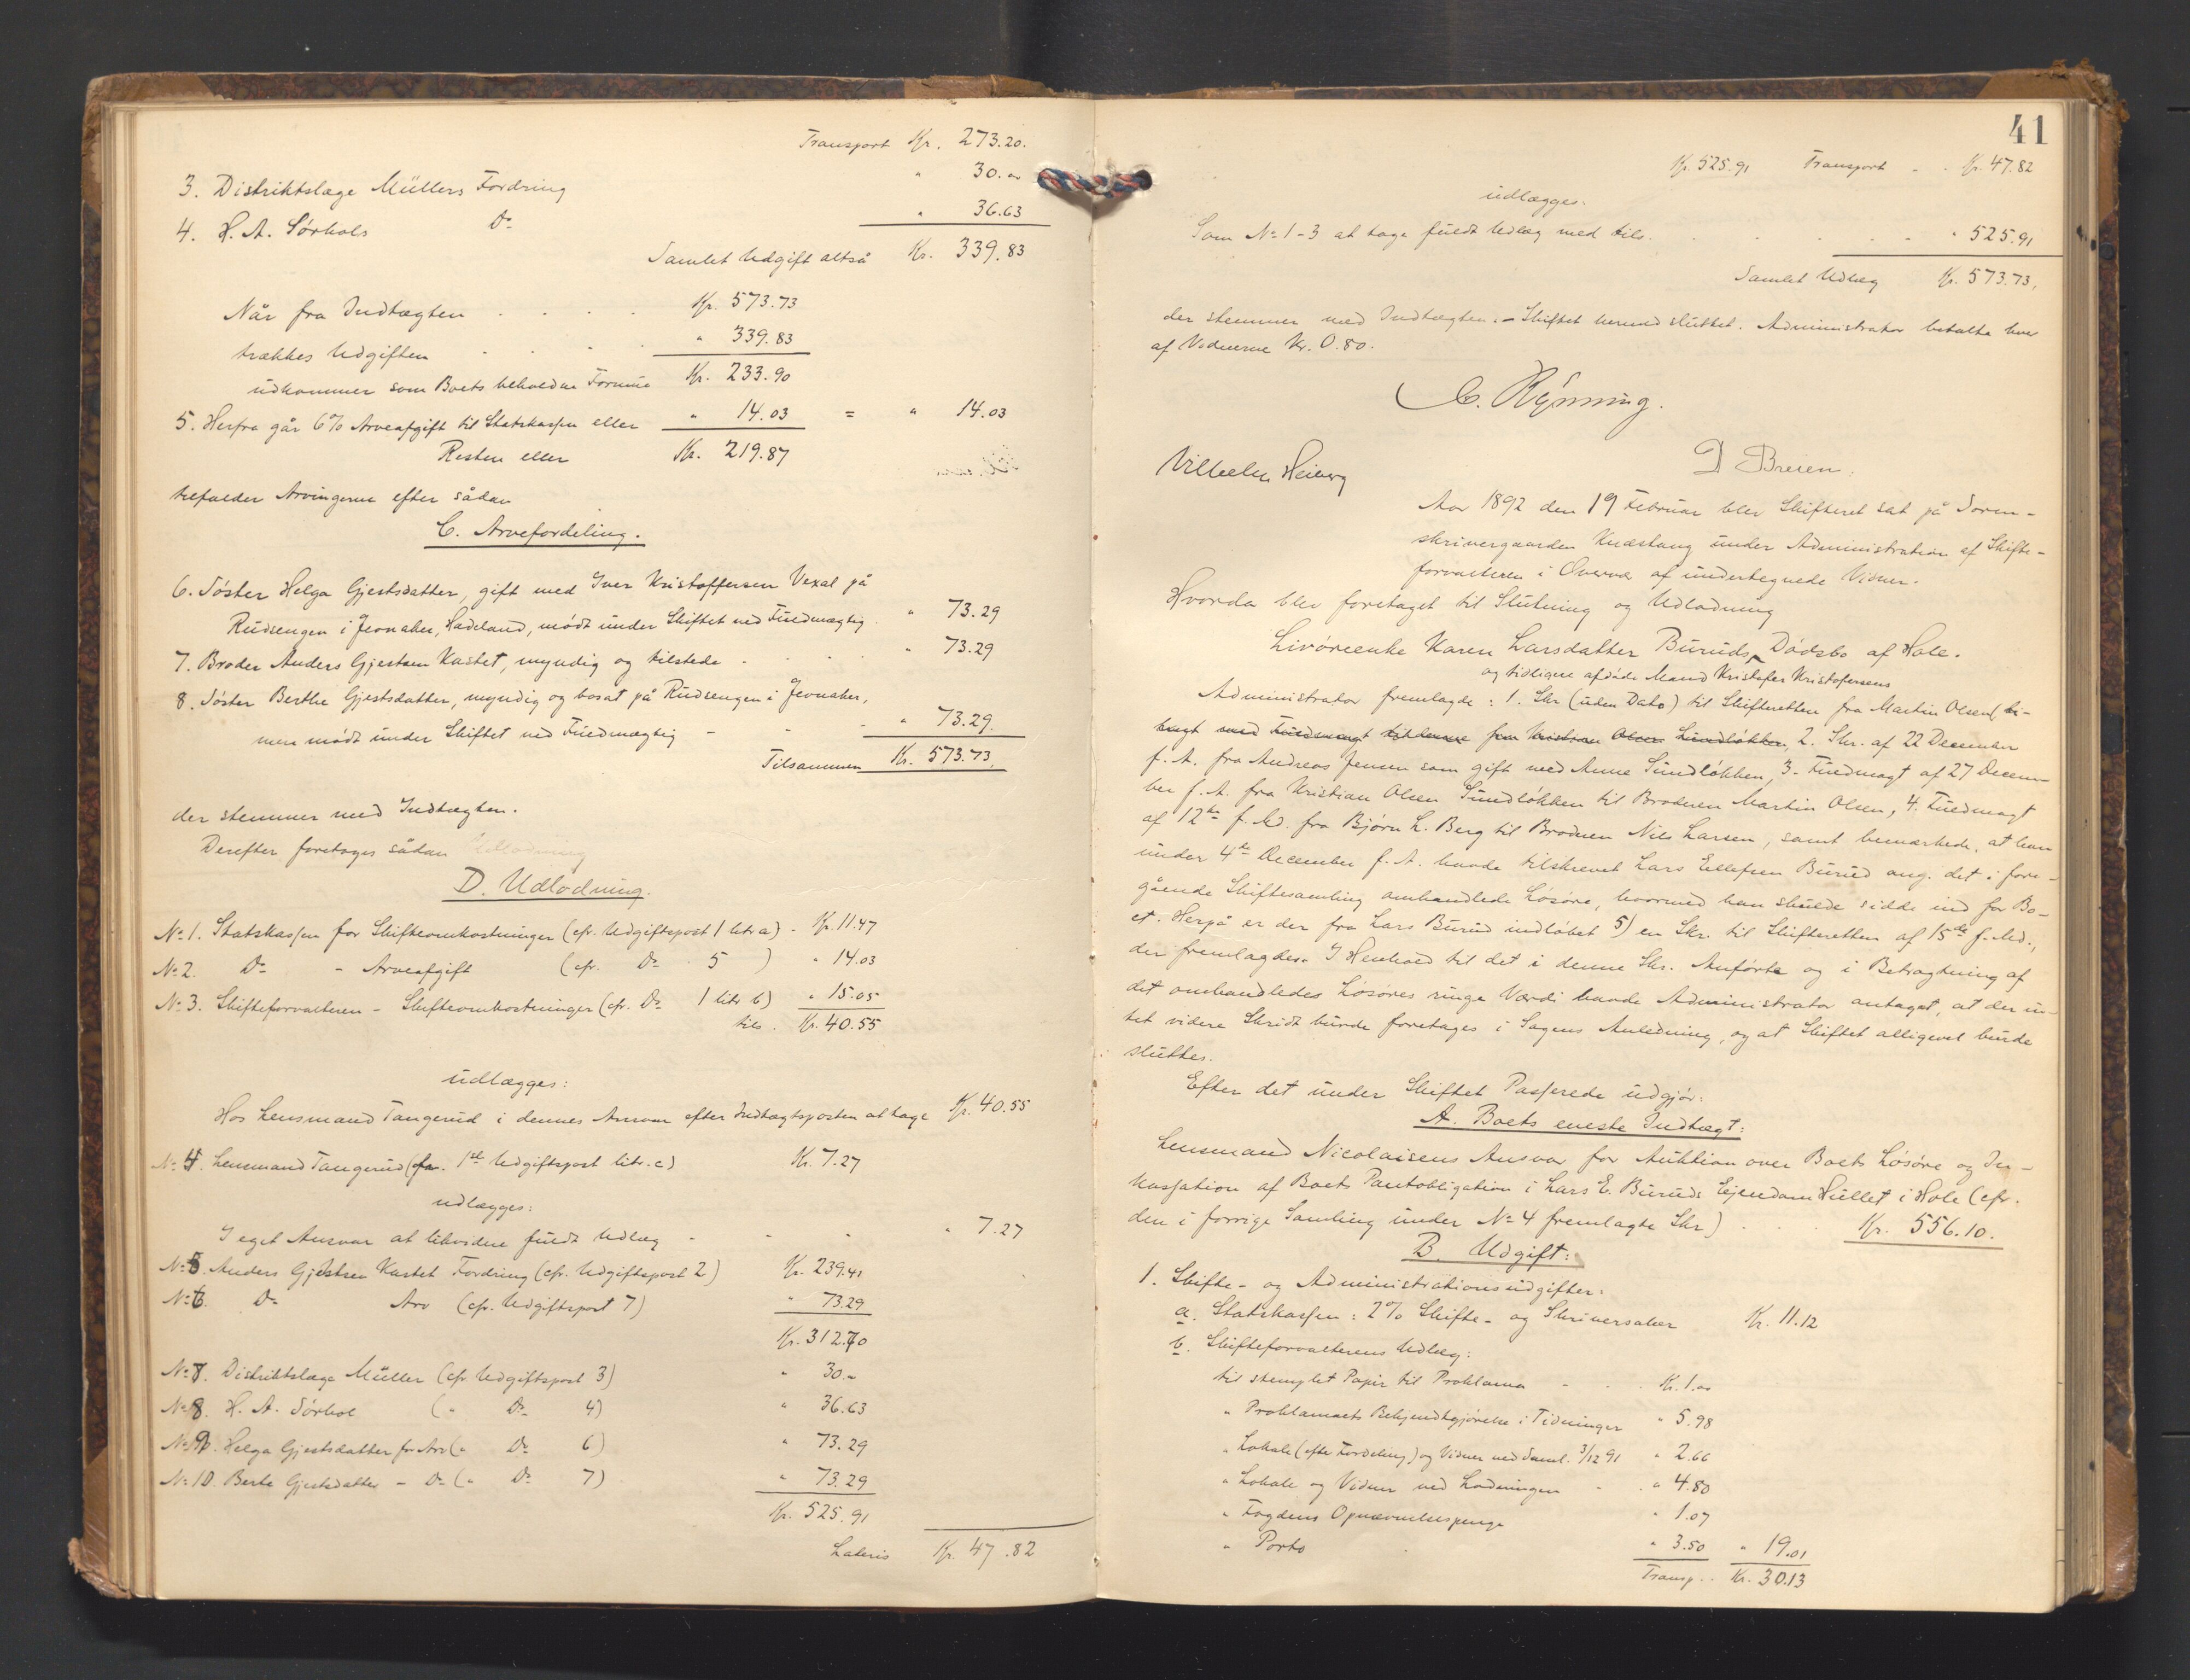 Transport Kr. 273.20.
3. Distriktslæge Müllers Fordring " 30.00
4. H. A. Sørhols Do " 36.63
Samlet Udgift altså Kr. 339.83
Når fra Indtægten Kr. 573.73
trækkes Udgiften " 339.83
udkommer som Boets beholdne Formue Kr. 233.90
5. Herfra går 6% Arveafgift til Statskassen eller " 14.03 = " 14.03
Resten eller Kr. 219.87
tilfalder Arvingerne efter sådan
C. Arvefordeling.
6. Søster Helga Gjestsdatter, gift med Iver Kristoffersen Vexal på
Rudsengen i Jevnaker, Hadeland, mødt under Skiftet ved Fuldmægtig " 73.29
7. Broder Anders Gjestsen Kastet, myndig og tilstede " 73.29
8. Søster Berthe Gjestsdatter, myndig og bosat på Rudsengen i Jevnaker,
men mødt under Skiftet ved Fuldmægtig - " 73.29.
Tilsammen Kr. 573.73,
der stemmer med Indtægten.
Derefter foretoges sådan Udlodning
D. Udlodning.
No 1. Statskassen for Skifteomkostninger (cfr. Udgiftspost 1 litr a) - Kr. 11.47
No 2. Do - Arveafgift (cfr. Do 5 ) " 14.03
No 3. Skifteforvalteren - Skifteomkostninger (cfr. Do 1 litr b) " 15.05
tils. Kr. 40.55
udlægges:
Hos Lensmand Tangerud i dennes Ansvar efter Indtægtsposten at tage Kr. 40.55
No 4. Lensmand Tangerud (cfr. 1ste Udgiftspost litr. c) Kr. 7.27
udlægges:
I eget Ansvar at likvidere fuldt Udlæg - " 7.27
No 5. Anders Gjestsen Kastet Fordring (cfr. Udgiftspost 2) Kr. 239.41
No 6. Do Arv (cfr. Udgiftspost 7) " 73.29
Kr. 312.70
No 7. Distriktslæge Müller (cfr Udgiftspost 3) " 30.-
No 8. H. A. Sørhol (" Do 4) " 36.63
No 9. Helga Gjestsdatter for Arv (" Do 6) " 73.29
No 10. Berte Gjestsdatter - Do (" Do 7) " 73.29
Kr. 525.91
Lateris Kr. 47.82
41
Kr. 525.91 Transport - . Kr. 47.82
udlægges.
Som No 1-3 at tage fuldt Udlæg med tils. " 525.91
Samlet Udlæg Kr. 573.73,
der stemmer med Indtægten. - Skiftet hermed sluttet. Administrator betalte hver
af Vidnerne Kr. 0.80.
C. Rynning.
Vilhelm Heiberg D Breien.
Aar 1892 den 19 Februar blev Skifteret sat på Soren-
skrivergaarden Knæstang under Administration af Skifte-
forvalteren i Overvær af undertegnede Vidner.
Hvorda blev foretaget til Slutning og Udlodning
Livøreenke Karen Larsdatter Buruds Dødsbo af Hole.
og tidligere afdøde Mand Kristofer Kristofersens
Administrator fremlagde: 1. Skr (uden Dato) til Skifteretten fra Martin Olsen (bi-
lagt med Fuldmagt til denne fra Kristian Olsen Sundløkken, 2. Skr. af 22 December
f. A. fra Andreas Jensen som gift med Anne Sundløkken, 3. Fuldmagt af 27 Decem-
ber f. A. fra Kristian Olsen Sundløkken til Broderen Martin Olsen, 4. Fuldmagt
af 12te f. Md. fra Bjørn L. Berg til Broderen Nils Larsen, samt bemærkede, at han
under 4de December f. A. havde tilskrevet Lars Ellefsen Burud ang. det i fore-
gående Skiftesamling omhandlede Løsøre, hvormed han skulde sidde ind for Bo-
et. Herpå er der fra Lars Burud indløbet 5) en Skr. til Skifteretten af 15de f. Md.,
der fremlagdes. I Henhold til det i denne Skr. Anførte og i Betragtning af
det omhandledes Løsøres ringe Værdi havde Administrator antaget, at der in-
tet videre Skridt burde foretages i Sagens Anledning, og at Skiftet alligevel burde
sluttes.
Efter det under Skiftet Passerede udgjør:
A. Boets eneste Indtægt:
Lensmand Nicolaisens Ansvar for Auktion over Boets Løsøre og In-
kassation af Boets Pantobligation i Lars E. Buruds Eiendom Hullet i Hole (cfr.
den i forrige Samling under No 4 fremlagte Skr) Kr. 556.10.
B. Udgift:
1. Skifte- og Administrationsudgifter:
a. Statskassen: 2% Skifte- og Skriversaler Kr. 11.12
b. Skifteforvalterens Udlæg:
til stemplet Papir til Proklama - Kr. 1.00
" Proklamaets Bekjendtgjørelse i Tidninger " 5.98
" Lokale (efter Fordeling) og Vidner ved Saml. 3/12 91 " 2.66
" Lokale og Vidner ved Lodningen " 4.80
" Fogdens Opnævnelsespenge " 1.07
" Porto " 3.50 " 19.01
Transp. . Kr. 30.13